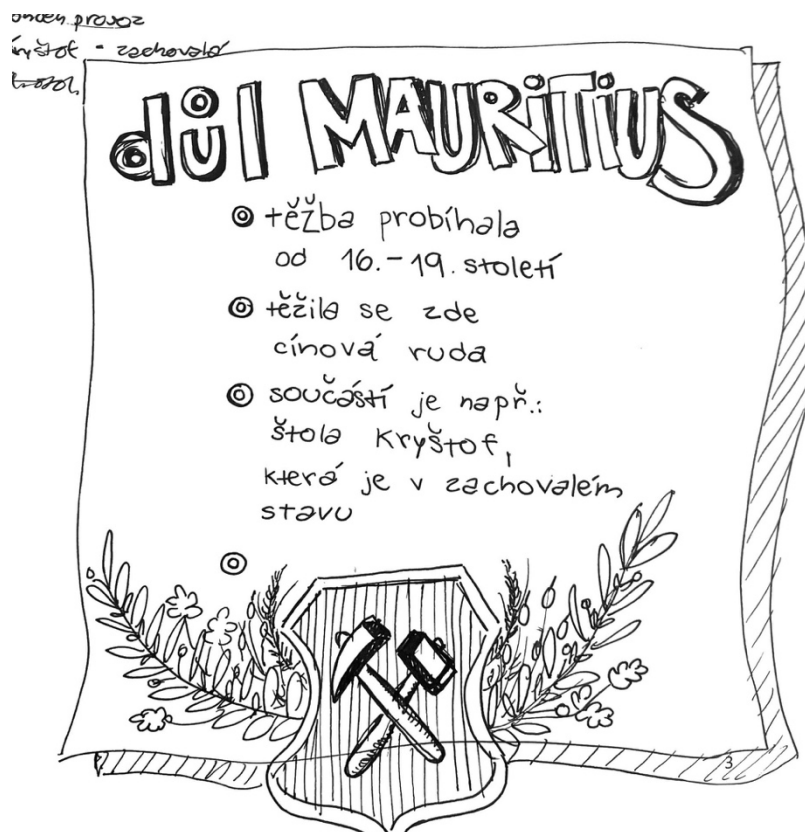 provoz
zachovalá
důl MAURITIUS
těžba probíhala
od 16.-19. století
těžila se zde
cínová ruda
součástí je např.:
štola Kryštof,
která je v zachovalém
stavu
3